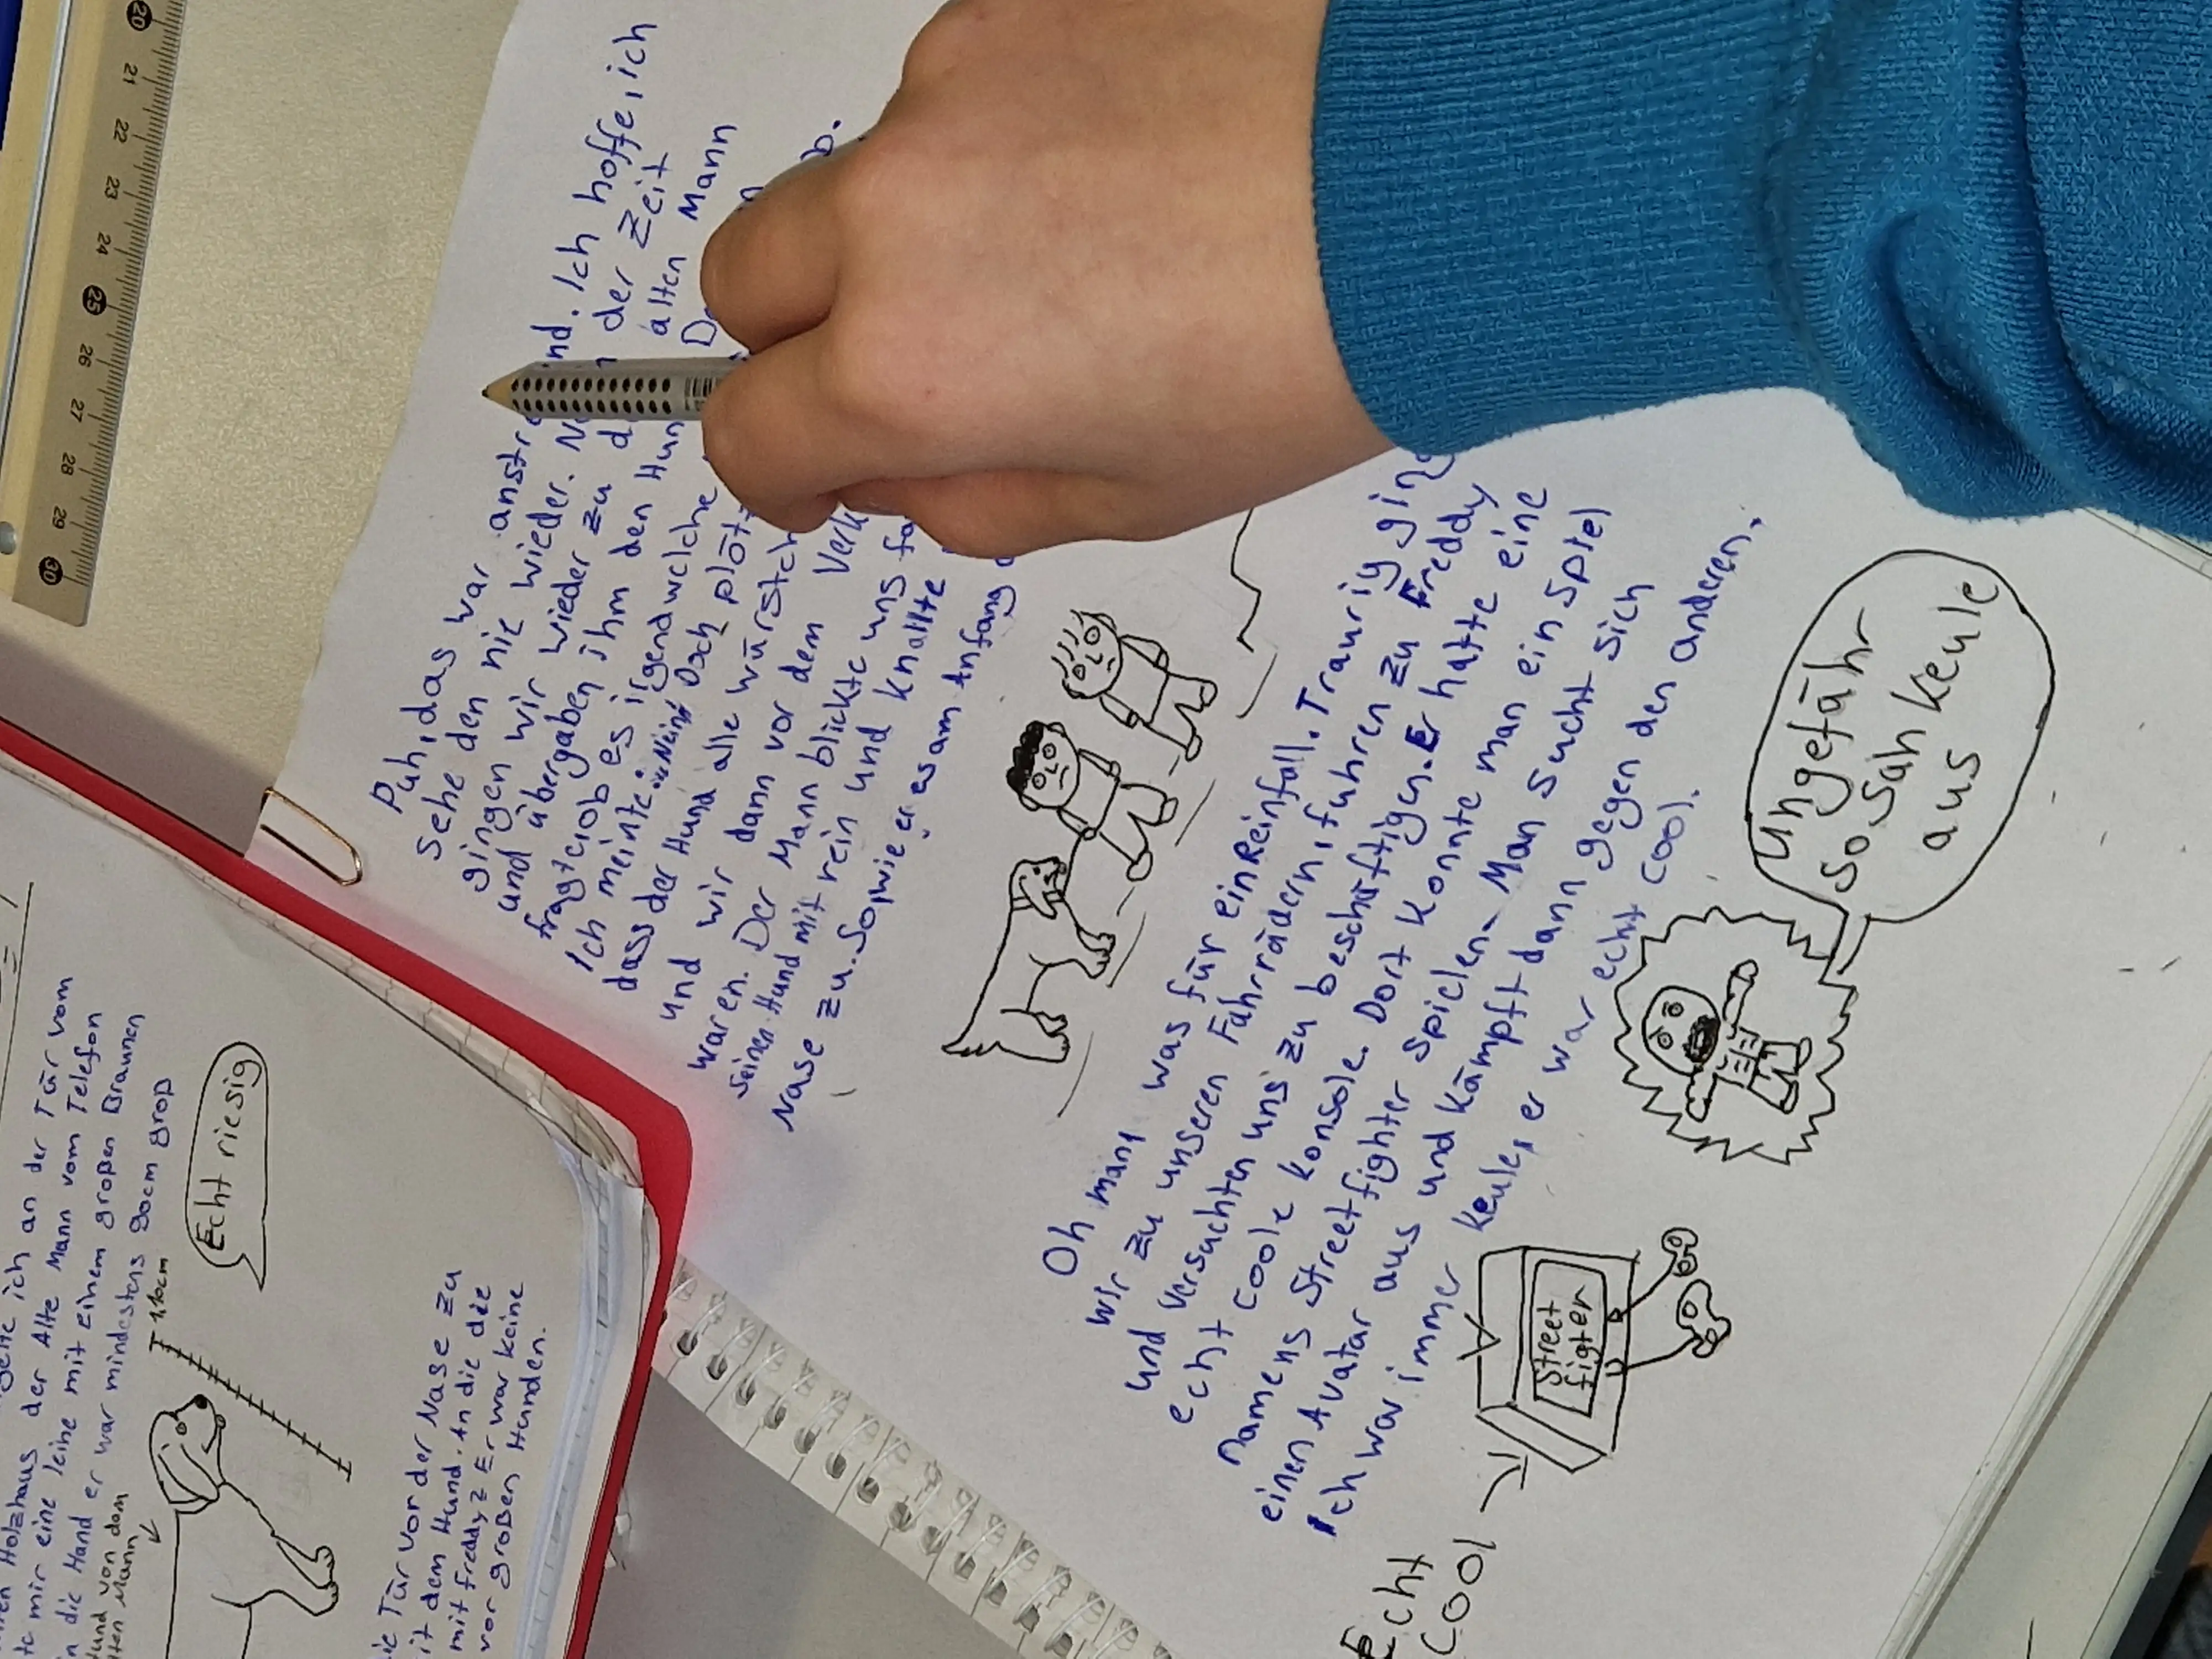 Puh, das war anstr nd. Ich hoffe, ich
sehe den nie wieder. der Zeit
gingen wir wieder zu alten Mann
und übergaben ihm den Hun
fragte, ob es irgendwelche
Ich meinte: „Nein" Doch plötz
dass der Hund alle würstch
und wir dann vor dem Verk
waren. Der Mann blickte uns
seinen Hund mit rein und knallte
Nase zu. Sowie er es am Anfang
Oh man, was für ein Reinfall. Traurig ging
wir zu unseren Fahrrädern, fuhren zu Freddy
und versuchten uns zu beschäftigen. Er hatte eine
echt coole Konsole. Dort konnte man ein Spiel
namens Streetfighter spielen. Man sucht sich
einen Avatar aus und kämpft dann gegen den anderen.
Ich war immer Keule, er war echt cool.
Echt
cool
Street
figter
ungefähr
so sah Keule
aus
ich an der Tür vom
Holzhaus der Alte Mann vom Telefon
mir eine leine mit einem großen Braunen
in die Hand er war mindestens 90cm groß
Hund von dem
Mann
1,10cm
Echt riesig
Tür vor der Nase zu
mit dem Hund. An die die
mit freddy z Er war keine
vor großen Hunden.
20
21
22
23
24
25
26
27
28
29
30